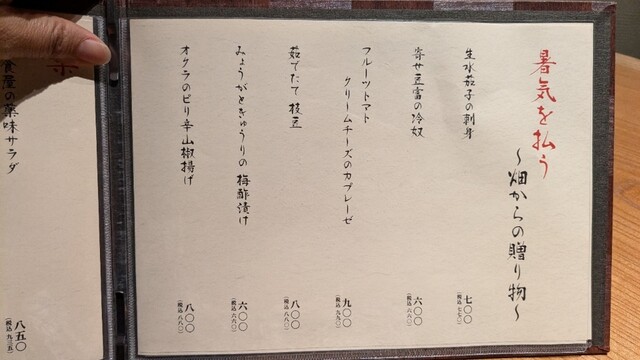 暑気を払う
～畑からの贈り物～
生水茄子の刺身
七〇〇
(税込 七七〇)
寄せ豆富の冷奴
六〇〇
(税込 六六〇)
フルーツトマト
クリームチーズのカプレーゼ
九〇〇
(税込 九九〇)
茹でたて枝豆
八〇〇
(税込 八八〇)
みょうがときゅうりの梅酢漬け
六〇〇
(税込 六六〇)
オクラのピリ辛山椒揚げ
八〇〇
(税込 八八〇)
産の薬味サラダ
八五〇
(税込 九三五)